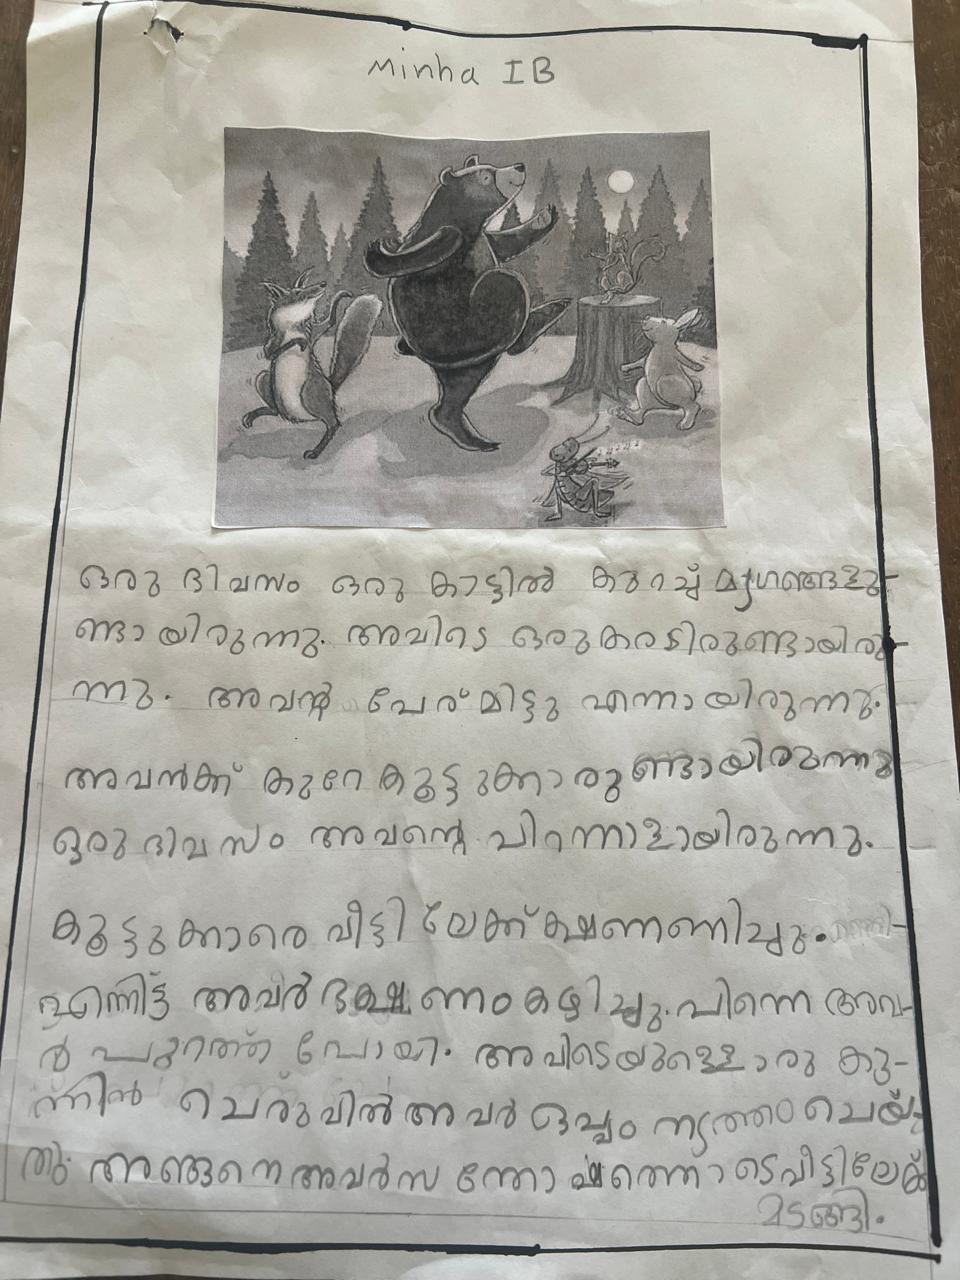 Minha IB
ഒരു ദിവസം ഒരു കാട്ടിൽ കുറച്ച് മൃഗങ്ങളു-
ണ്ടായിരുന്നു. അവിടെ ഒരുകരടിരുണ്ടായിരു-
ന്നു. അവന്റ പേര് മിട്ടു എന്നായിരുന്നു.
അവൻക്ക് കുറേ കൂട്ടുക്കാരുണ്ടായിരുന്നു
ഒരു ദിവസം അവന്റെ പിറന്നാളായിരുന്നു.
കൂട്ടുക്കാരെ വീട്ടിലേക്ക് ക്ഷണണിച്ചു.
എന്നിട്ട് അവർ ഭക്ഷണം കഴിച്ചു. പിന്നെ അവ-
ർ പുറത്ത് പോയി. അവിടെയുള്ളൊരു കു-
ന്നിൻ ചെരുവിൽ അവർ ഒപ്പം നൃത്തം ചെയ്-
തു. അങ്ങനെ അവർ സന്തോഷത്തൊടെ വീട്ടിലേക്ക്
മടങ്ങി.